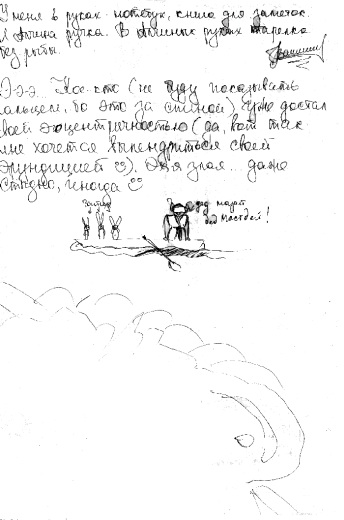 У меня в руках нотебук, книга для заметок.
А Анина ручка. В Аниных руках тарелка
без рыбы.
Эээ. Кое-кто (не буду показывать
пальцем, ибо это за спиной) уже достал
своей эксцентричностью (да, вот так
мне хочется выпендриться своей
эрундицией ☺). Эх я злая... даже
стыдно, иногда ☺
дед мазай